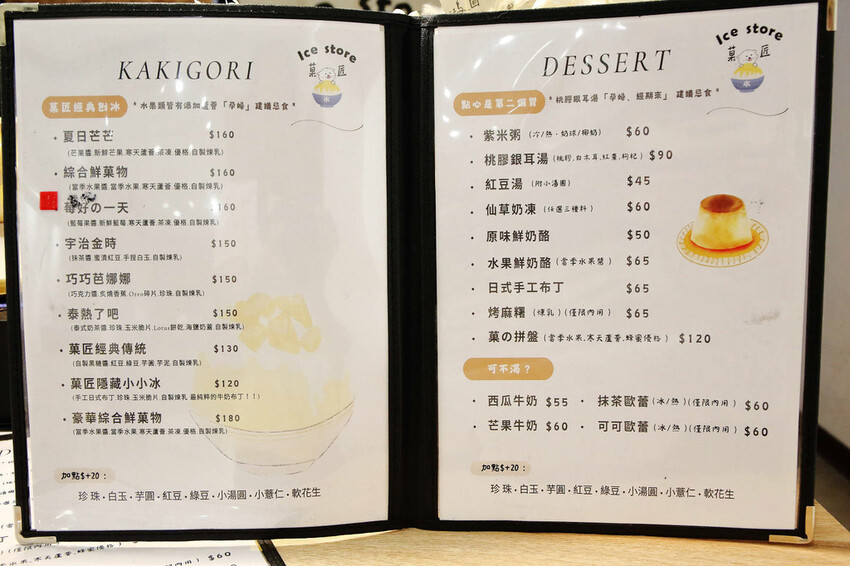 KAKIGORI
Ice store
菓匠
冰
菓匠經典刨冰 *水果類皆有添加蘆薈「孕婦」建議忌食*
・夏日芒芒 $160
(芒果醬.新鮮芒果.寒天蘆薈.茶凍.優格.自製煉乳)
・綜合鮮菓物 $160
(當季水果醬.當季水果.寒天蘆薈.茶凍.優格.自製煉乳)
莓好の一天 $160
(藍莓果醬.新鮮藍莓.寒天蘆薈.茶凍.優格.自製煉乳)
・宇治金時 $150
(抹茶醬.蜜漬紅豆.手捏白玉.自製煉乳)
・巧巧芭娜娜 $150
(巧克力醬.炙燒香蕉.Oreo碎片.珍珠.自製煉乳)
・泰熱了吧 $150
(泰式奶茶醬.珍珠.玉米脆片.Lotus餅乾.海鹽奶蓋.自製煉乳)
・菓匠經典傳統 $130
(自製黑糖醬.紅豆.綠豆.芋圓.芋泥.自製煉乳)
・菓匠隱藏小小冰 $120
(手工日式布丁.珍珠.玉米脆片.自製煉乳 最純粹的牛奶布丁！！)
・豪華綜合鮮菓物 $180
(當季水果醬.當季水果.寒天蘆薈.茶凍.優格.自製煉乳)
加點$+20：
珍珠・白玉・芋圓・紅豆・綠豆・小湯圓・小薏仁・軟花生
DESSERT
Ice store
菓匠
冰
點心是第二個胃 *桃膠銀耳湯「孕婦、經期來」建議忌食*
・紫米粥 (冷/熱・奶球/椰奶) $60
・桃膠銀耳湯 (桃膠.白木耳.紅棗.枸杞) $90
・紅豆湯 (附小湯圓) $45
・仙草奶凍 (任選三種料) $60
・原味鮮奶酪 $50
・水果鮮奶酪 (當季水果醬) $65
・日式手工布丁 $65
・烤麻糬 (煉乳)(僅限內用) $65
・菓の拼盤 (當季水果.寒天蘆薈.蜂蜜優格) $120
可不渴？
・西瓜牛奶 $55 ・抹茶歐蕾 (冰/熱)(僅限內用) $60
・芒果牛奶 $60 ・可可歐蕾 (冰/熱)(僅限內用) $60
加點$+20：
珍珠・白玉・芋圓・紅豆・綠豆・小湯圓・小薏仁・軟花生
(僅限內用) $60